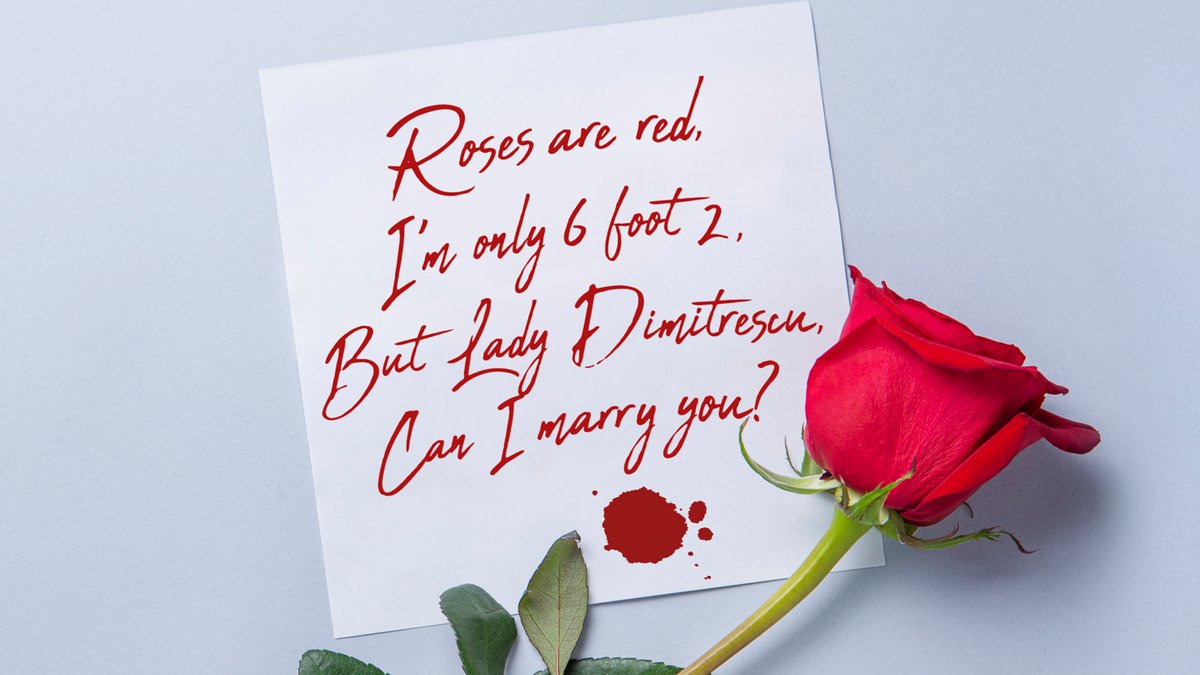 Roses are red,
I'm only 6 foot 2,
But Lady Dimitrescu,
Can I marry you?